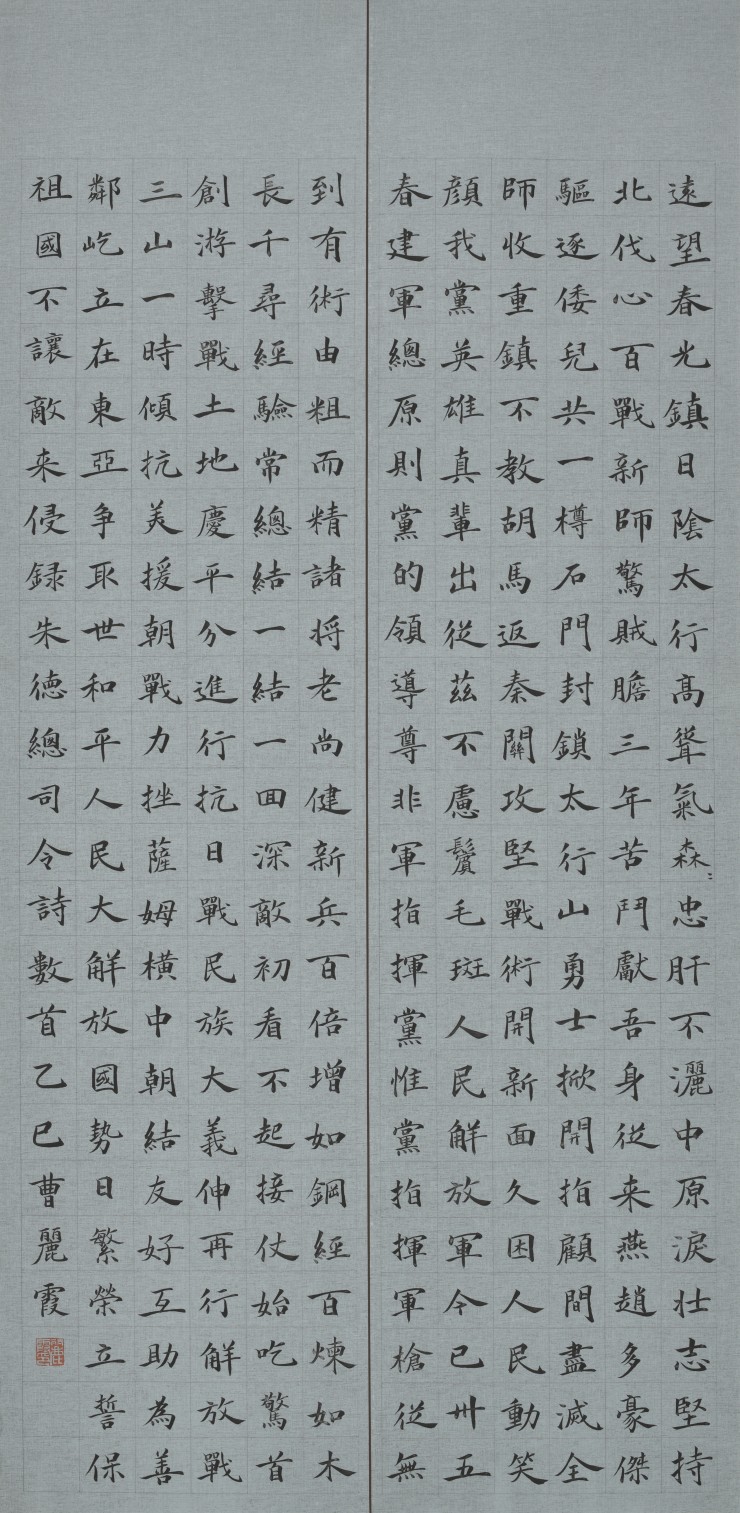 遠望春光鎮日陰太行高聳氣森〻忠肝不灑中原淚壯志堅持
北伐心百戰新師驚賊膽三年苦鬥獻吾身從来燕趙多豪傑
驅逐倭兒共一樽石門封鎖太行山勇士掀開指顧間盡滅全
師收重鎮不教胡馬返秦關攻堅戰術開新面久困人民動笑
顏我黨英雄真輩出從茲不慮鬢毛斑人民解放軍今已卅五
春建軍總原則黨的領導尊非軍指揮黨惟黨指揮軍槍從無
到有術由粗而精諸将老尚健新兵百倍增如鋼經百煉如木
長千尋經驗常總結一結一回深敵初看不起接仗始吃驚首
創游擊戰土地慶平分進行抗日戰民族大義伸再行解放戰
三山一時傾抗美援朝戰力挫薩姆橫中朝結友好互助為善
鄰屹立在東亞争取世和平人民大解放國勢日繁榮立誓保
祖國不讓敵来侵録朱德總司令詩數首乙巳曹麗霞